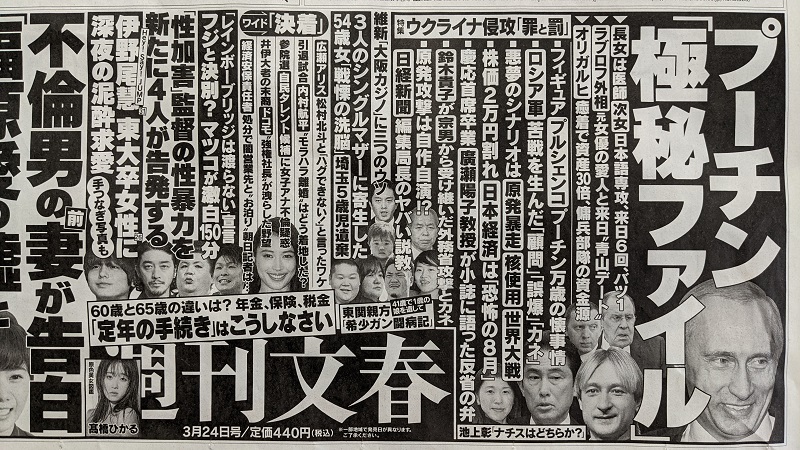 プーチン「極秘ファイル」
長女は医師 次女「日本語専攻、来日6回、バツ1」
ラブロフ外相 元女優の愛人と来日“青山デート”
オリガルヒ 癒着で資産30倍、傭兵部隊の資金源
特集 ウクライナ侵攻「罪と罰」
フィギュア プルシェンコ プーチン万歳の懐事情
ロシア軍 苦戦を生んだ「顧問」「誤爆」「カネ」
悪夢のシナリオは 原発暴走 核使用 世界大戦
株価2万円割れ 日本経済は「恐怖の8月」
慶応首席卒業 廣瀬陽子教授が小誌に語った反省の弁
鈴木貴子が宗男から受け継いだ外務省攻撃とカネ
原発攻撃は自作自演!?
日経新聞 編集局長のヤバい説教
池上彰「ナチスはどちらか?」
維新「大阪カジノ」に三つのウソ
3人のシングルマザーに寄生した
54歳女戦慄の洗脳 埼玉5歳児遺棄
ワイド「決着」
広瀬アリス 松村北斗と「ハグできない」と言ったワケ
引退試合 内村航平“モラハラ離婚”はどう着地した?
参院選 自民タレント候補に女子アナ不倫疑惑
井伊大老の末裔 ドコモ“強権社長”が洩らした野望
経済安保責任者 処分で「闇営業先と“お泊り”朝日記者は…」
レインボーブリッジは渡らない宣言
フジと決別? マツコが激白150分
「性加害監督の性暴力を
新たに4人が告発する」
Hey! Say! JUMP
伊野尾慧 東大卒女性に
深夜の泥酔求愛 手つなぎ写真も
不倫男の前妻が告白
60歳と65歳の違いは? 年金、保険、税金
「定年の手続き」はこうしなさい
東関親方
41歳で1歳の娘を遺して
「希少ガン闘病記」
原色美女図鑑
髙橋ひかる
週刊文春
3月24日号/定価440円(税込)
※一部地域で発売日が異なります。
ご了承ください。